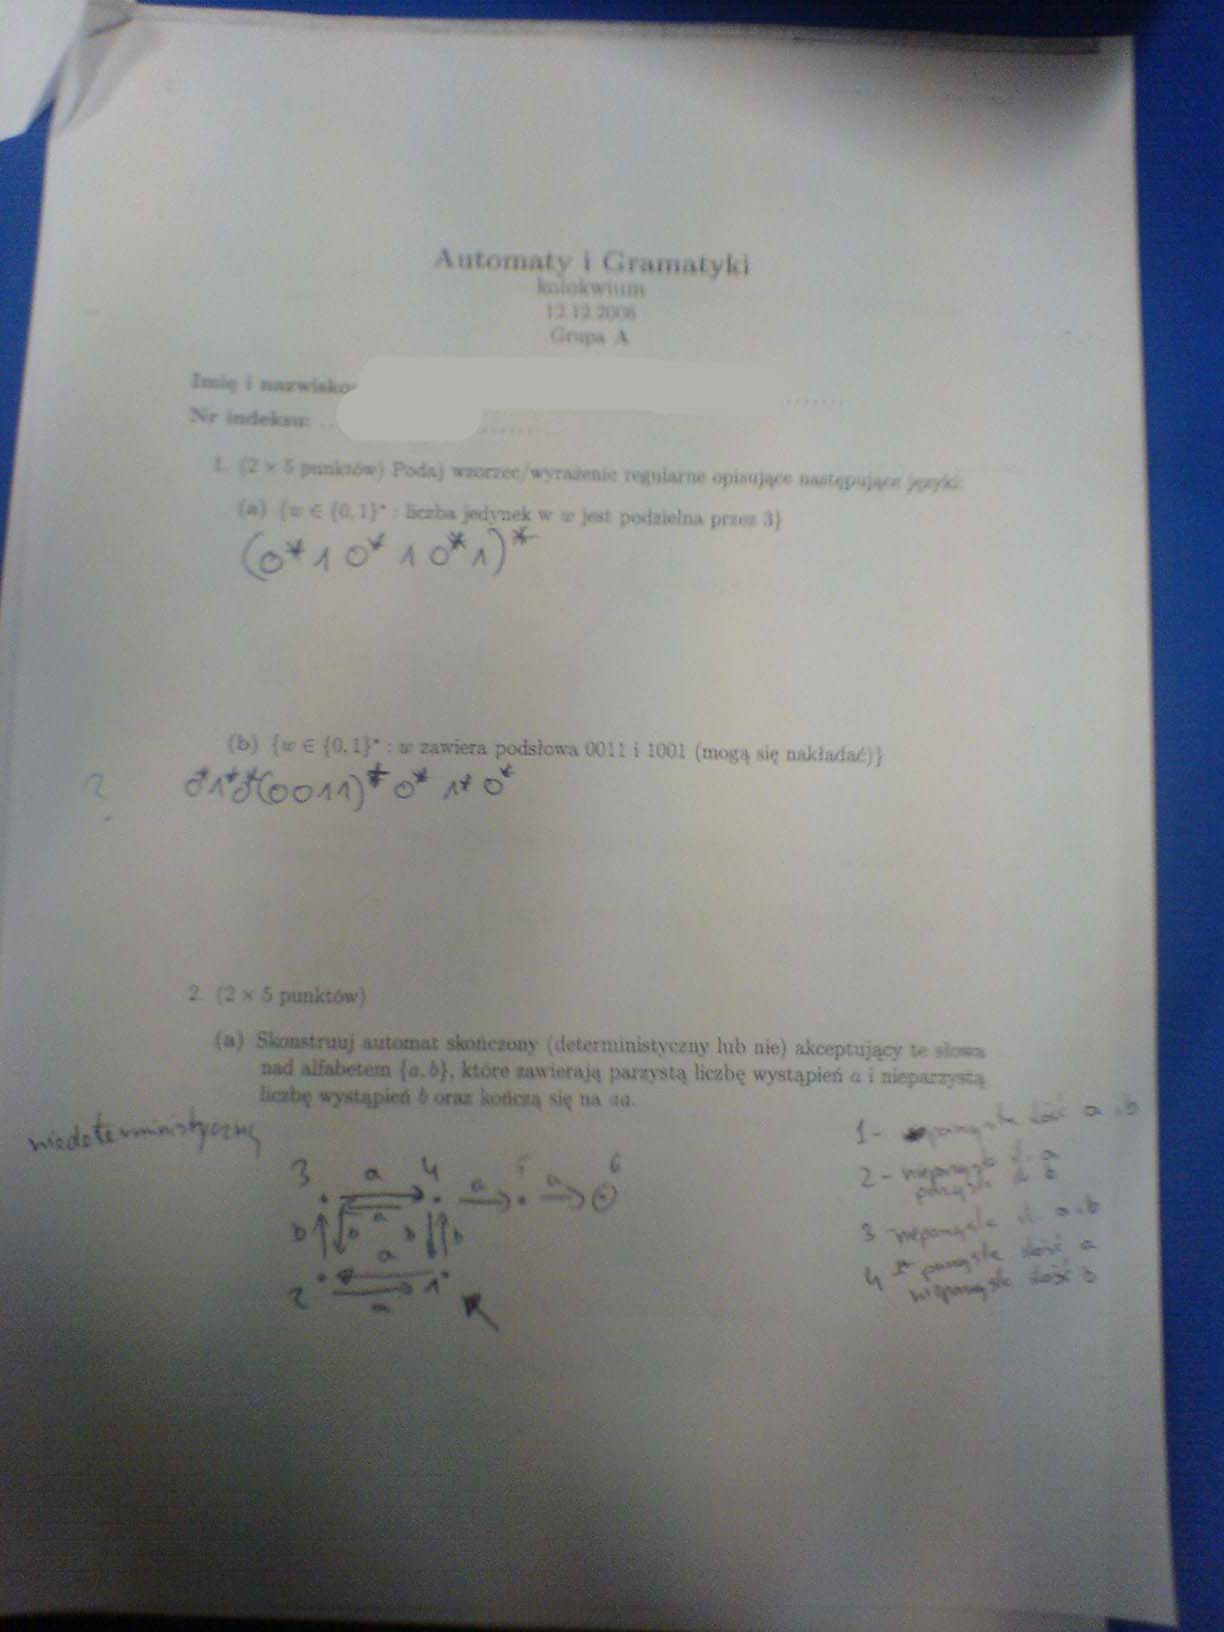 Automaty i Gramatyki
kolokwium
12.12.2006
Grupa A
Imię i nazwisko:
Nr indeksu:
1. (2 × 5 punktów) Podaj wzorzec/wyrażenie regularne opisujące następujące języki:
(a) {w ∈ {0,1}* : liczba jedynek w w jest podzielna przez 3}
(0*10*10*1)*
(b) {w ∈ {0,1}* : w zawiera podsłowa 0011 i 1001 (mogą się nakładać)}
? 0*1*0*(0011)*0*1*0*
2. (2 × 5 punktów)
(a) Skonstruuj automat skończony (deterministyczny lub nie) akceptujący te słowa
nad alfabetem {a, b}, które zawierają parzystą liczbę wystąpień a i nieparzystą
liczbę wystąpień b oraz kończą się na aa.
niedeterministyczny
1- parzysta ilość a i b
3 a 4 a 5 a 6
2- nieparzysta il. a
parzysta b
a
b b b b
3 nieparzysta il. a i b
a
4 parzysta ilość a
nieparzysta ilość b
2 1
a